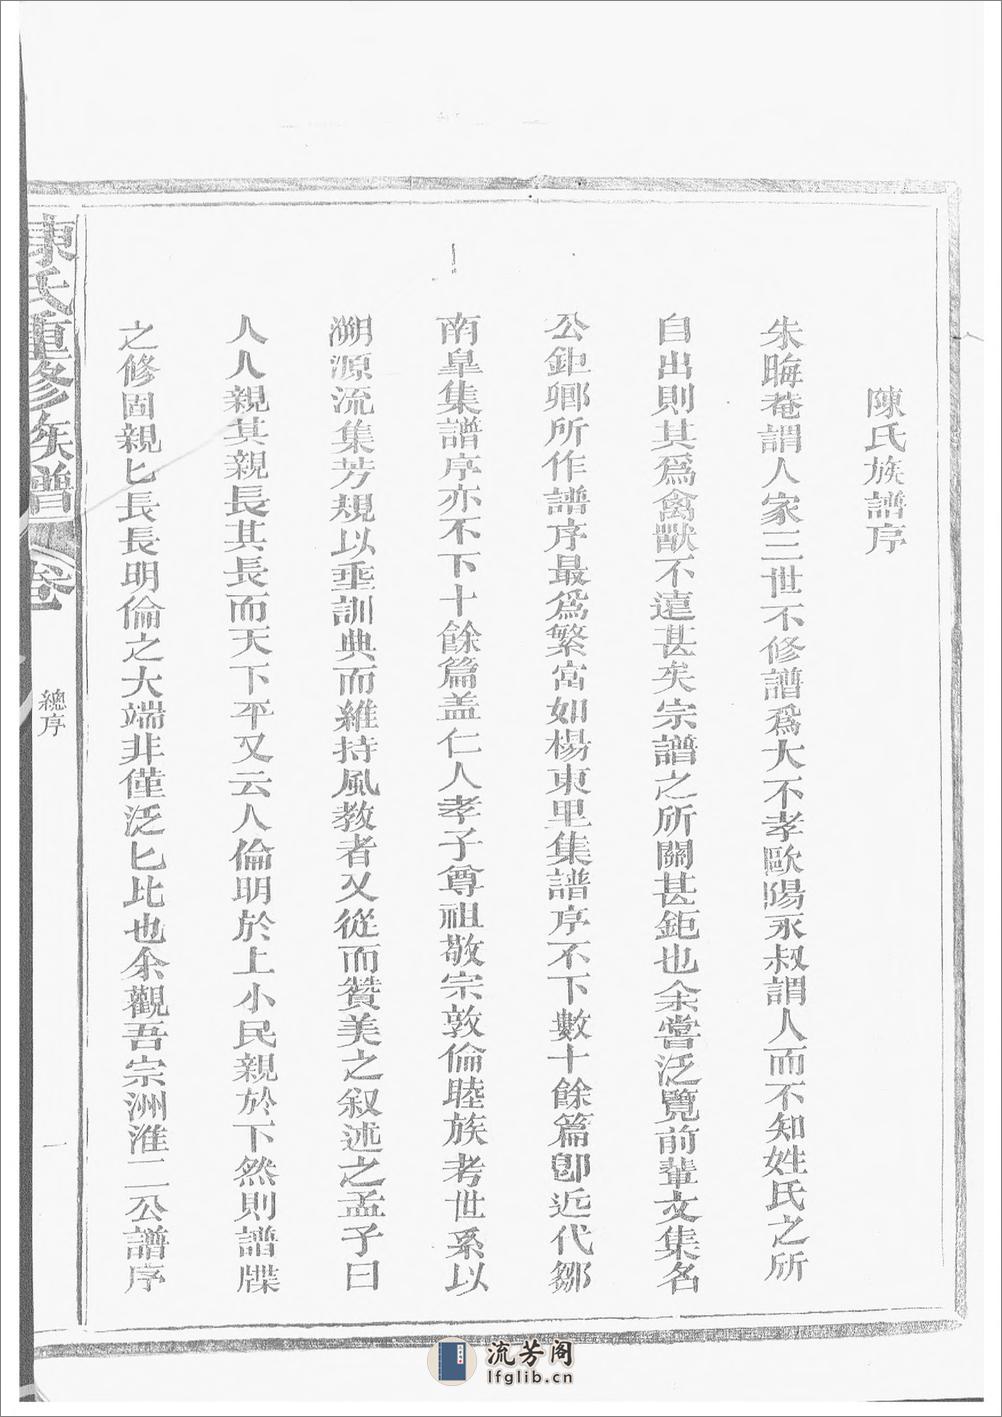 陳氏族譜序
朱晦菴謂人家三世不修譜爲大不孝歐陽永叔謂人而不知姓氏之所
自出則其爲禽獸不遠甚矣宗譜之所關甚鉅也余嘗泛覽前輩文集名
公鉅卿所作譜序最爲繁富如楊東里集譜序不下數十餘篇即近代鄒
南皐集譜序亦不下十餘篇盖仁人孝子尊祖敬宗敦倫睦族考世系以
溯源流集芳規以垂訓典而維持風教者又從而贊美之叙述之孟子曰
人人親其親長其長而天下平又云人倫明於上小民親於下然則譜牒
之修固親匕長長明倫之大端非僅泛匕比也余觀吾宗洲淮二公譜序
陳氏重修族譜
卷
總序
一
流芳阁
lfglib.cn